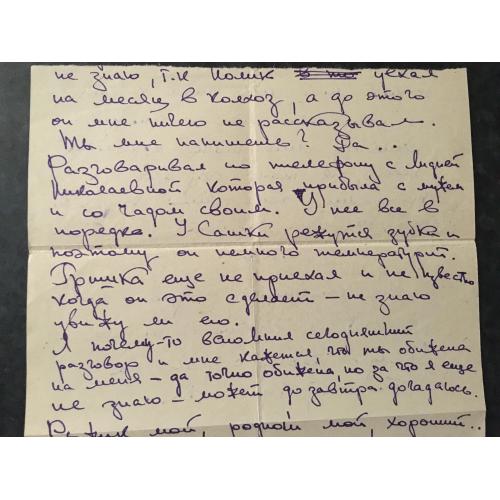 не знаю, т.к Полик уехал
на месяц в колхоз, а до этого
он мне ничего не рассказывал.
Ты мне напишешь? Да...
Разговаривал по телефону с Лидией
Николаевной которая прибыла с мужем
и со чадом своим. У нее все в
порядке. У Сашки режутся зубки и
поэтому он немного температурит.
Гришка еще не приехал и не известно
когда он это сделает – не знаю
увижу ли его.
Я почему-то вспомнил сегодняшний
разговор и мне кажется, что ты обижена
на меня – да точно обижена, но за что я еще
не знаю – может до завтра догадаюсь.
Рыжик мой, родной мой, хороший..